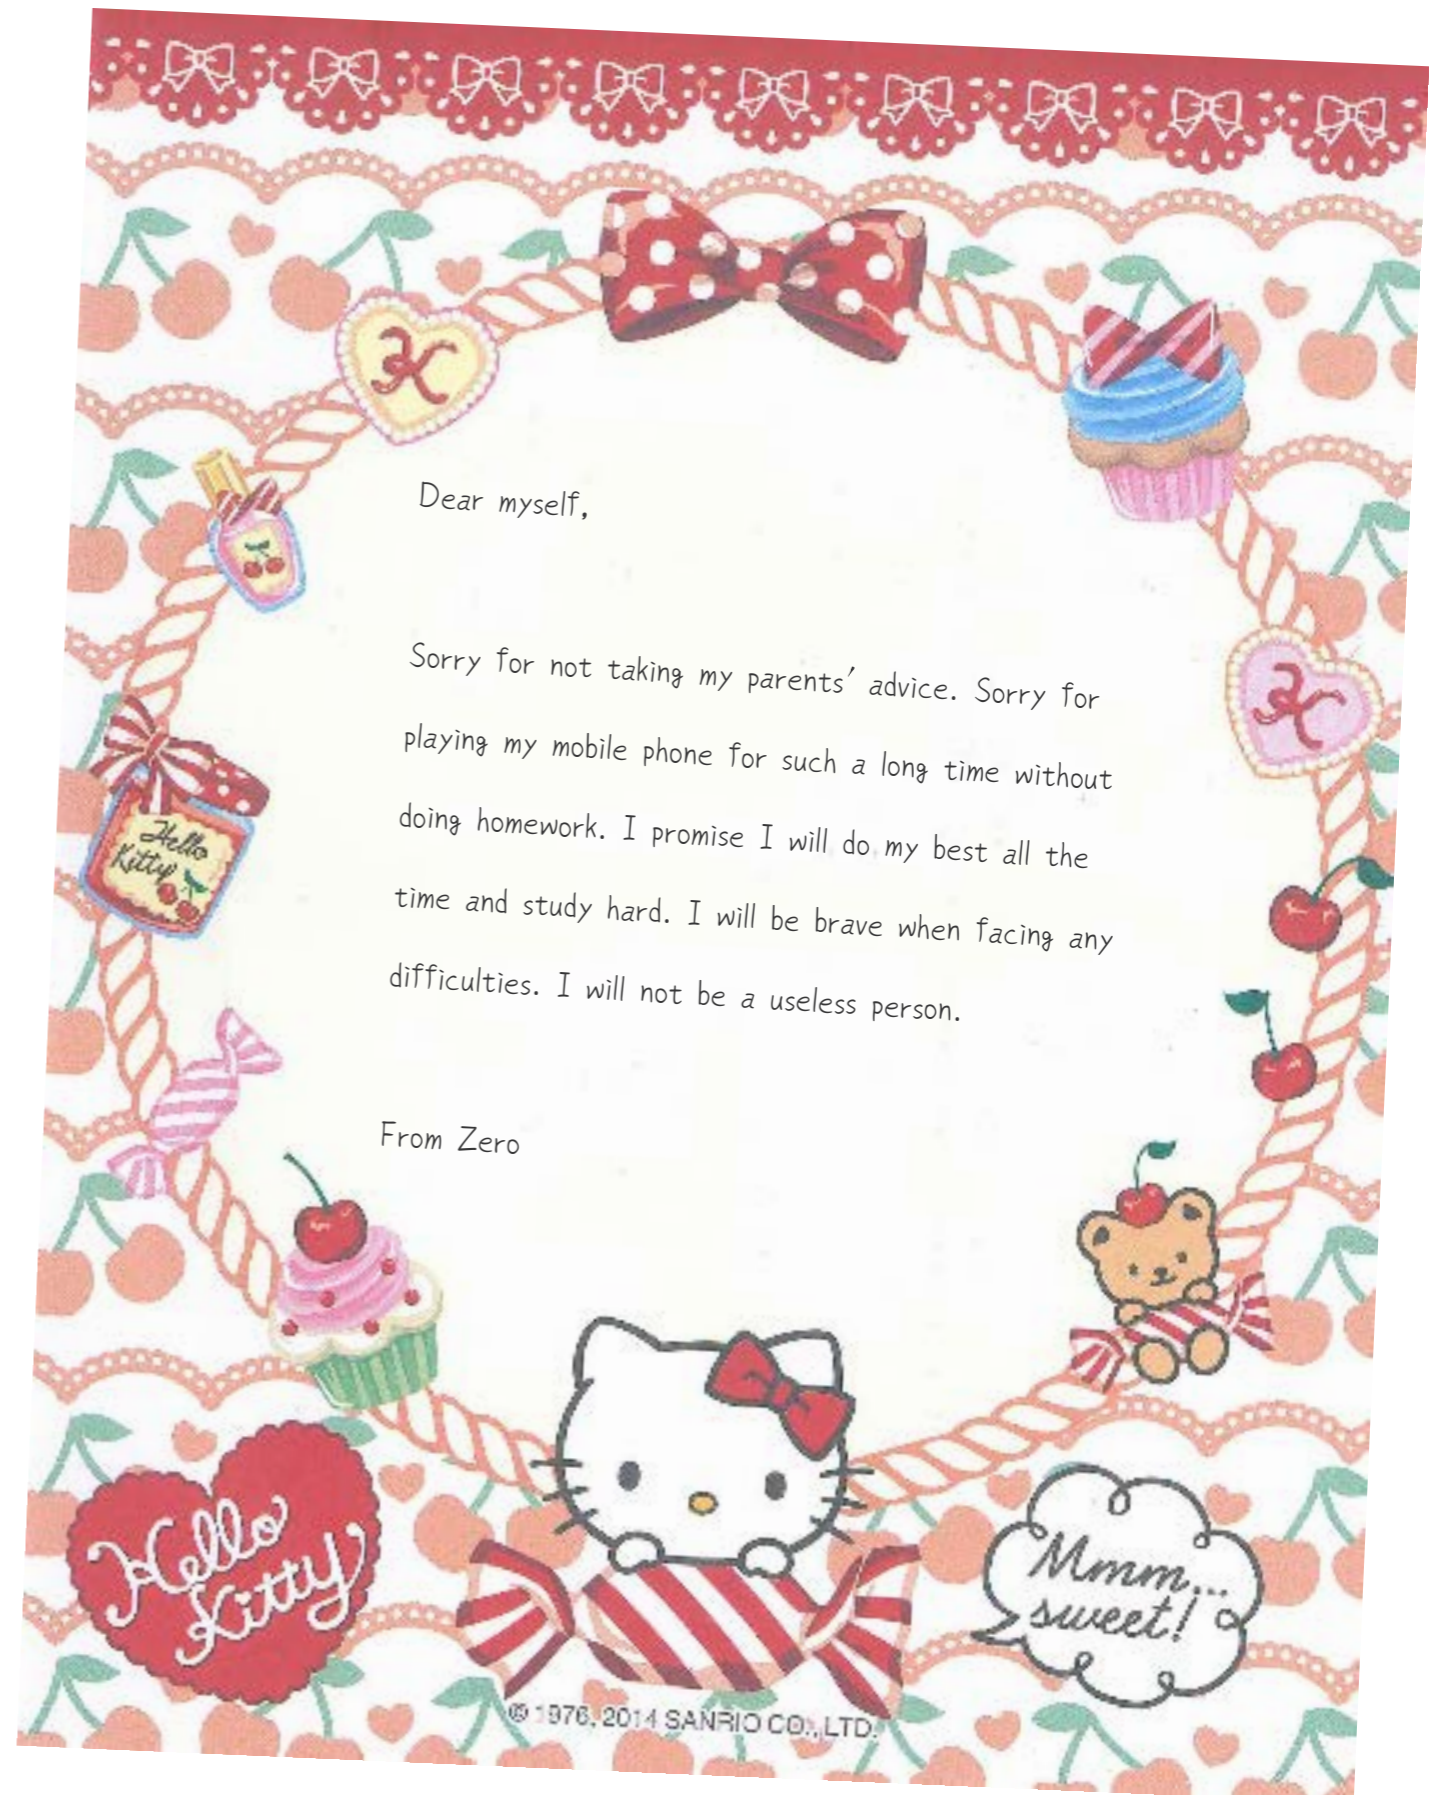 Dear myself,
Sorry for not taking my parents' advice. Sorry for
playing my mobile phone for such a long time without
doing homework. I promise I will do my best all the
time and study hard. I will be brave when facing any
difficulties. I will not be a useless person.
From Zero
Hello
Kitty
Hello
Kitty
Mmm...
sweet!
© 1976, 2014 SANRIO CO., LTD.